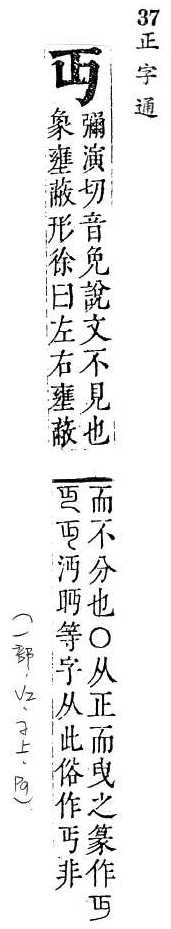 37正字通
丏
彌演切音免說文不見也
象壅蔽形徐曰左右壅蔽
而不分也○从正而曳之篆作丏
沔眄等字从此俗作丐非